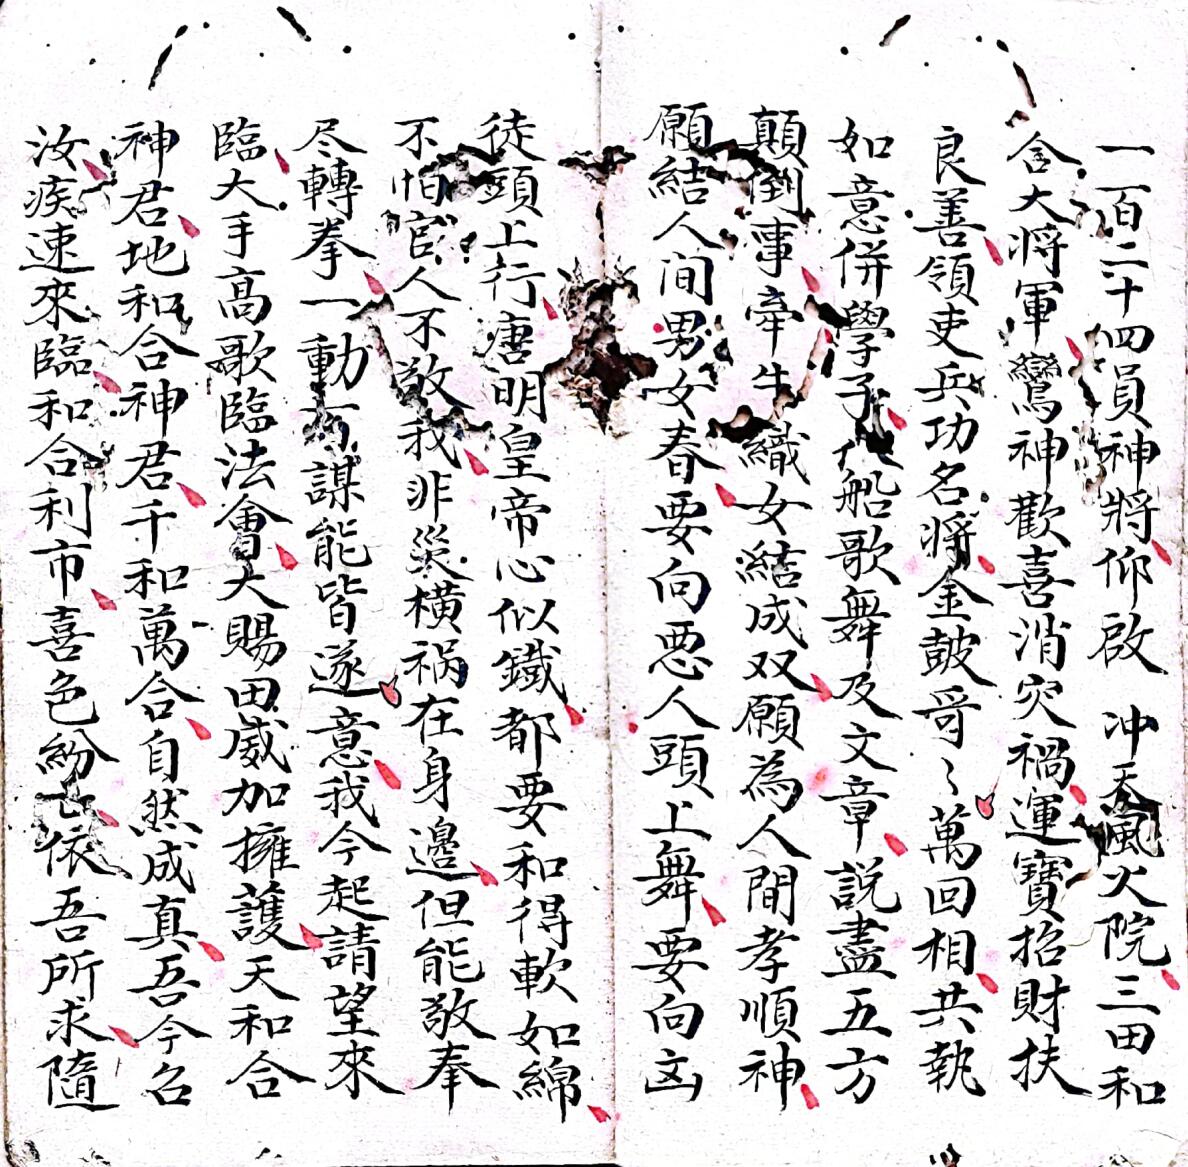 一百二十四員神將仰啟 冲天風火院三田和
合大將軍鸞神歡喜消灾禍運寶招財扶
良善領吏兵功名將金鼓哥〻萬回相共執
如意併學子船歌舞及文章説盡五方
顛倒事牽牛織女結成双願為人間孝順神
願結人间男女春要向悪人頭上舞要向凶
徒頭上行唐明皇帝心似鐵都要和得軟如綿
不怕官人不敬我非災橫禍在身邊但能敬奉
尽轉拳一動一謀能皆遂意我今起請望來
臨大手高歌臨法會大賜田威加擁護天和合
神君地和合神君千和萬合自然成真吾今召
汝疾速來臨和合利市喜色紛〻依吾所求隨